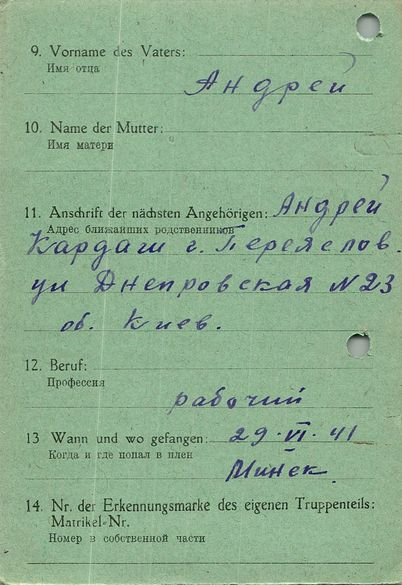 9. Vorname des Vaters:
Имя отца
Андрей
10. Name der Mutter:
Имя матери
11. Anschrift der nächsten Angehörigen: Андрей
Адрес ближайших родственников
Кардаш г. Переяслов.
ул Днепровская N 23
об. Киев.
12. Beruf:
Профессия
рабочий
13 Wann und wo gefangen: 29·VI·41
Когда и где попал в плен
Минск
14. Nr. der Erkennungsmarke des eigenen Truppenteils:
Matrikel-Nr.
Номер в собственной части